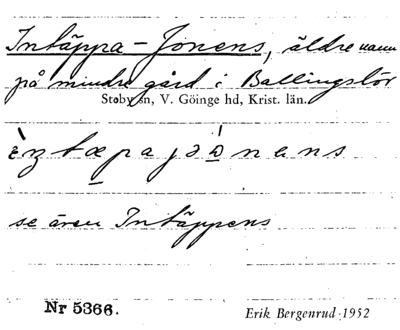 Intäppa-Jonens, äldre namn
på mindre gård i Ballingslöv
Stoby sn, V. Göinge hd, Krist. län.
se även Intäppens
Nr 5366.
Erik Bergenrud 1952